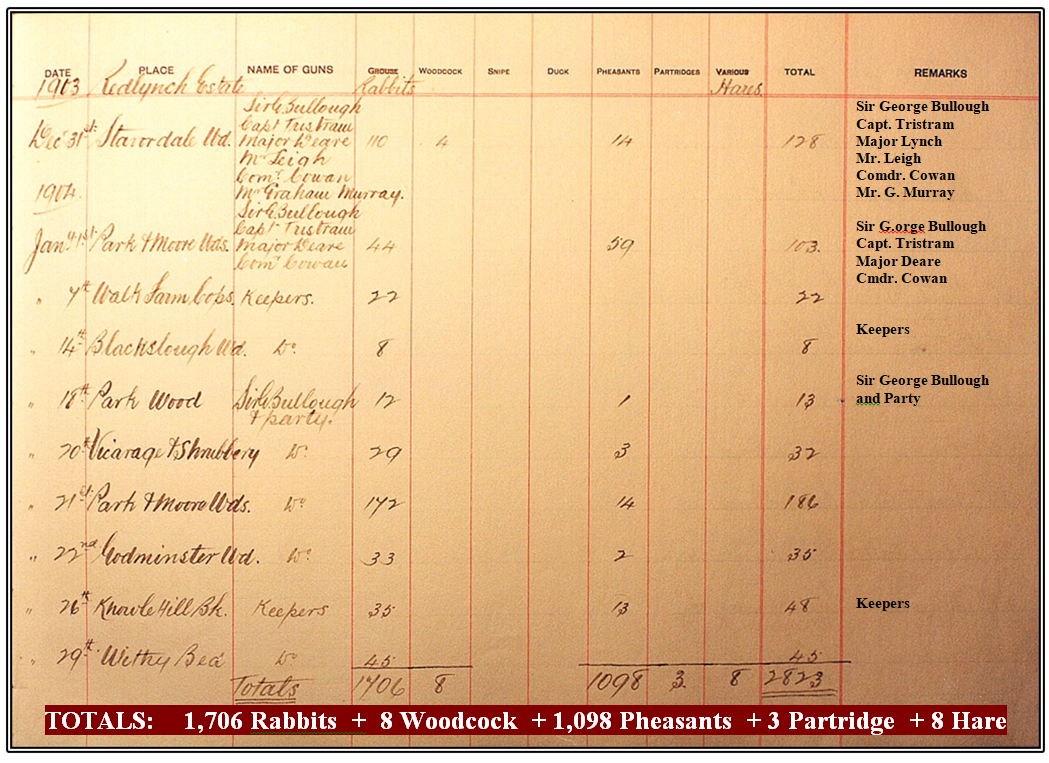 DATE PLACE NAME OF GUNS GROUSE WOODCOCK SNIPE DUCK PHEASANTS PARTRIDGES VARIOUS TOTAL REMARKS
1903 Redlynch Estate Rabbits Hares.
Sir G. Bullough
Capt Tristram
Dec 31st: Stavordale Wd. Major Deare 110 4 14 128
Mr Leigh
Comr. Cowan
1904. Mr Graham Murray.
Sir George Bullough
Capt. Tristram
Major Lynch
Mr. Leigh
Comdr. Cowan
Mr. G. Murray
Sir G. Bullough
Capt Tristram
Jany 1st: Park & Moore Wds. Major Deare 44 59 103.
Comr Cowan
Sir G.orge Bullough
Capt. Tristram
Major Deare
Cmdr. Cowan
" 7th Walk Farm Cops. Keepers. 22 22
" 14th Blackslough Wd. Do. 8 8
Keepers
" 18th Park Wood Sir G. Bullough 12 1 13
& party.
Sir George Bullough
and Party
" 20th Vicarage & Shrubbery Do. 29 3 32
" 21st: Park & Moore Wds. Do 172 14 186
" 22nd Godminster Wd. Do. 33 2 35
" 26th Knowle Hill Bk. Keepers 35 13 48 Keepers
" 29th Withy Bed Do 45 45
Totals 1706 8 1098 3 8 2823
TOTALS: 1,706 Rabbits + 8 Woodcock + 1,098 Pheasants + 3 Partridge + 8 Hare